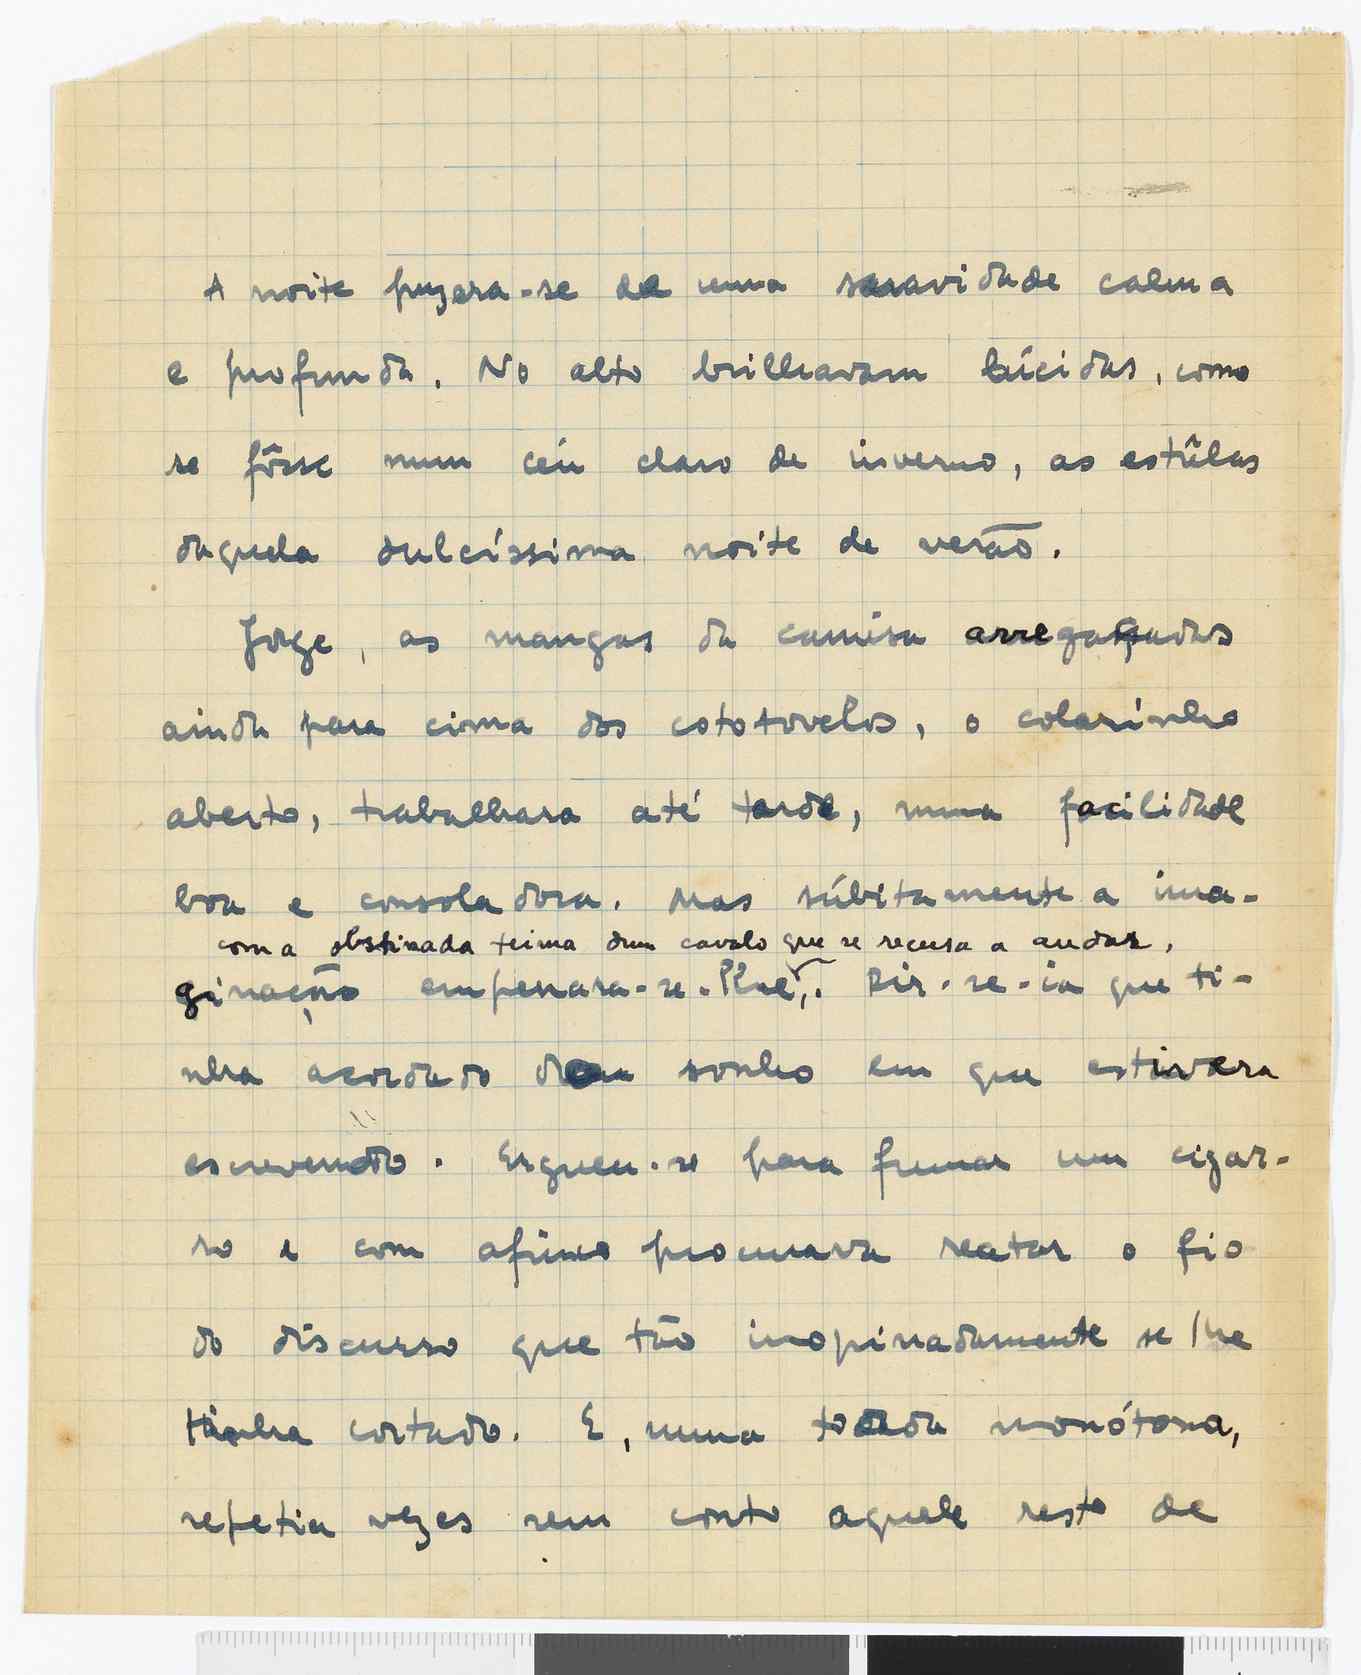 A noite puzera-se de uma suavidade calma
e profunda. No alto brilhavam lúcidas, como
se fôsse num céu claro de inverno, as estrêlas
daquela dulcíssima noite de verão.
Jorge, as mangas da camisa arregaçadas
ainda para cima dos cototovelos, o colarinho
aberto, trabalhara até tarde, numa facilidade
boa e consoladora. Mas súbitamente a ima-
com a obstinada teima dum cavalo que se recusa a andar.
ginação empenara-se. Dir-se-ia que ti-
nha acordado dum sonho em que estivera
escrevendo. Ergueu-se para fumar um cigar-
ro e com afinco procurava reatar o fio
do discurso que tão inopinadamente se lhe
tinha cortado. E, numa toada monótona,
repetia vezes sem conto aquele resto de